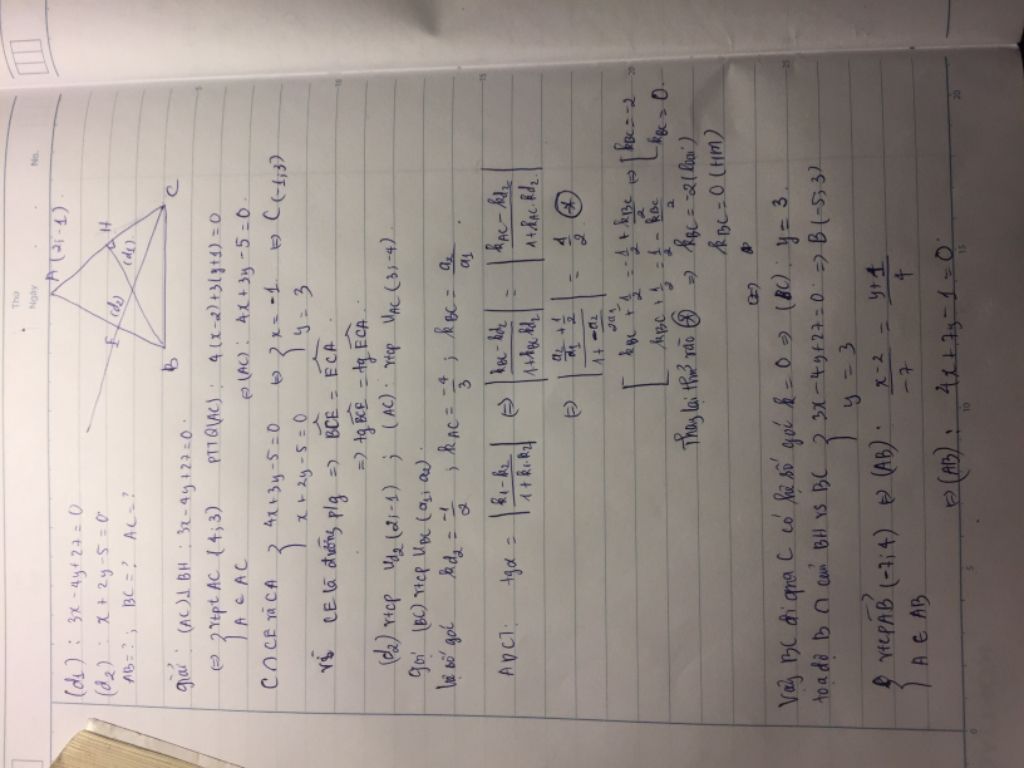 Thứ
Ngày
No.
(d1) : 3x - 4y + 27 = 0
(d2) : x + 2y - 5 = 0
AB = ? ; BC = ? AC = ?
A (2; -1)
I
(d2)
H
(d1)
B
C
giải : (AC) ⊥ BH : 3x - 4y + 27 = 0.
(=) { vtpt AC (4; 3) PTTQ(AC) : 4(x-2) + 3(y+1) = 0
A ∈ AC (=) (AC) : 4x + 3y - 5 = 0.
C ∩ CE và CA { 4x + 3y - 5 = 0 (=) { x = -1 (=) C(-1; 3)
x + 2y - 5 = 0 y = 3
Vì CE là đường p/g => BCE = ECA
=> tg BCE = tg ECA
(d2) vtcp U2 (2; -1) ; (AC) : vtcp UAC (3; -4)
gọi (BC) vtcp UBC (a1; a2)
hệ số góc kd2 = -1/2 ; kAC = -4/3 ; kBC = a2/a1
ADCT: tgα = |(k1 - k2)/(1 + k1.k2)| (=) |(kBC - kd2)/(1 + kBC kd2)| = |(kAC - kd2)/(1 + kAC kd2)|
(=) |(a2/a1 + 1/2)/(1 + -a2/2a1)| = 1/2 (*)
[ kBC + 1/2 = -1/2 + kBC/2 (=) [ kBC = -2
kBC + 1/2 = 1/2 - kBC/2 kBC = 0
Thay lại k vào (*) => kBC = -2 (loại)
kBC = 0 (TM)
(=)
Vậy BC đi qua C có hệ số góc k = 0 => (BC) : y = 3.
toạ độ B ∩ của BH vs BC } 3x - 4y + 27 = 0 => B (-5; 3)
y = 3
{ vtcp AB (-7; 4) (=) (AB) : (x-2)/-7 = (y+1)/4
A ∈ AB
(=) (AB) : 4x + 7y - 1 = 0.
0
5
10
15
20